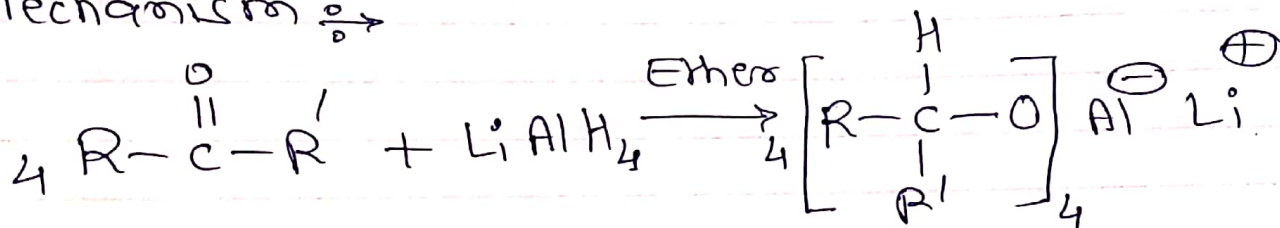 Mechanism :→
4 R-C(=O)-R' + LiAlH₄ —Ether→ 4 [R-C(H)(R')-O]₄ Al⊖ Li⊕